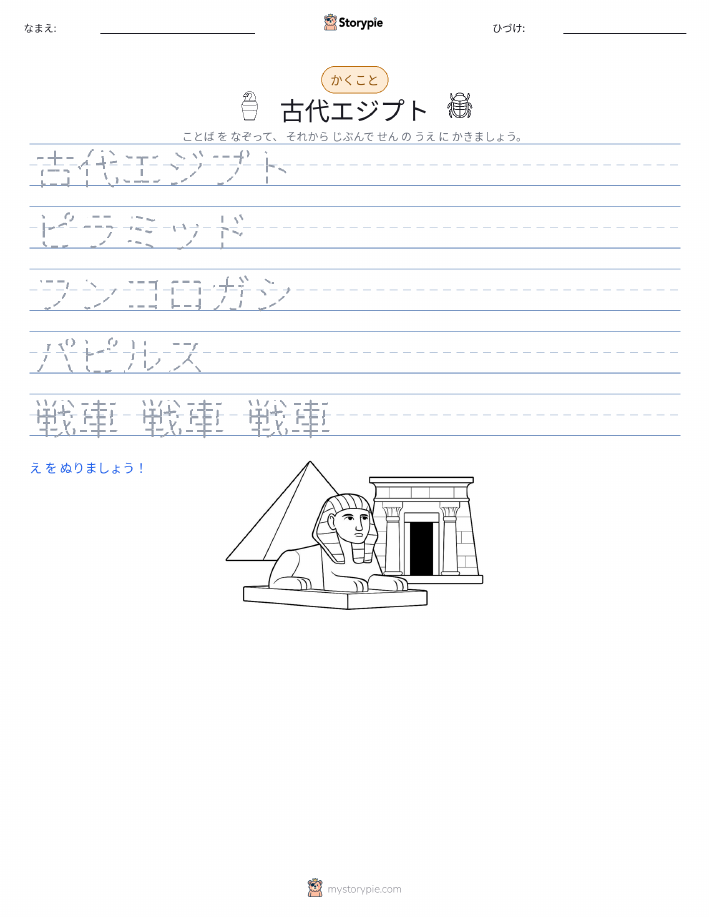 なまえ:
Storypie
ひづけ:
かくこと
古代エジプト
ことば を なぞって、 それから じぶんで せん の うえ に かきましょう。
古代エジプト
ピラミッド
フンコロガシ
パピルス
戦車 戦車 戦車
え を ぬりましょう！
mystorypie.com